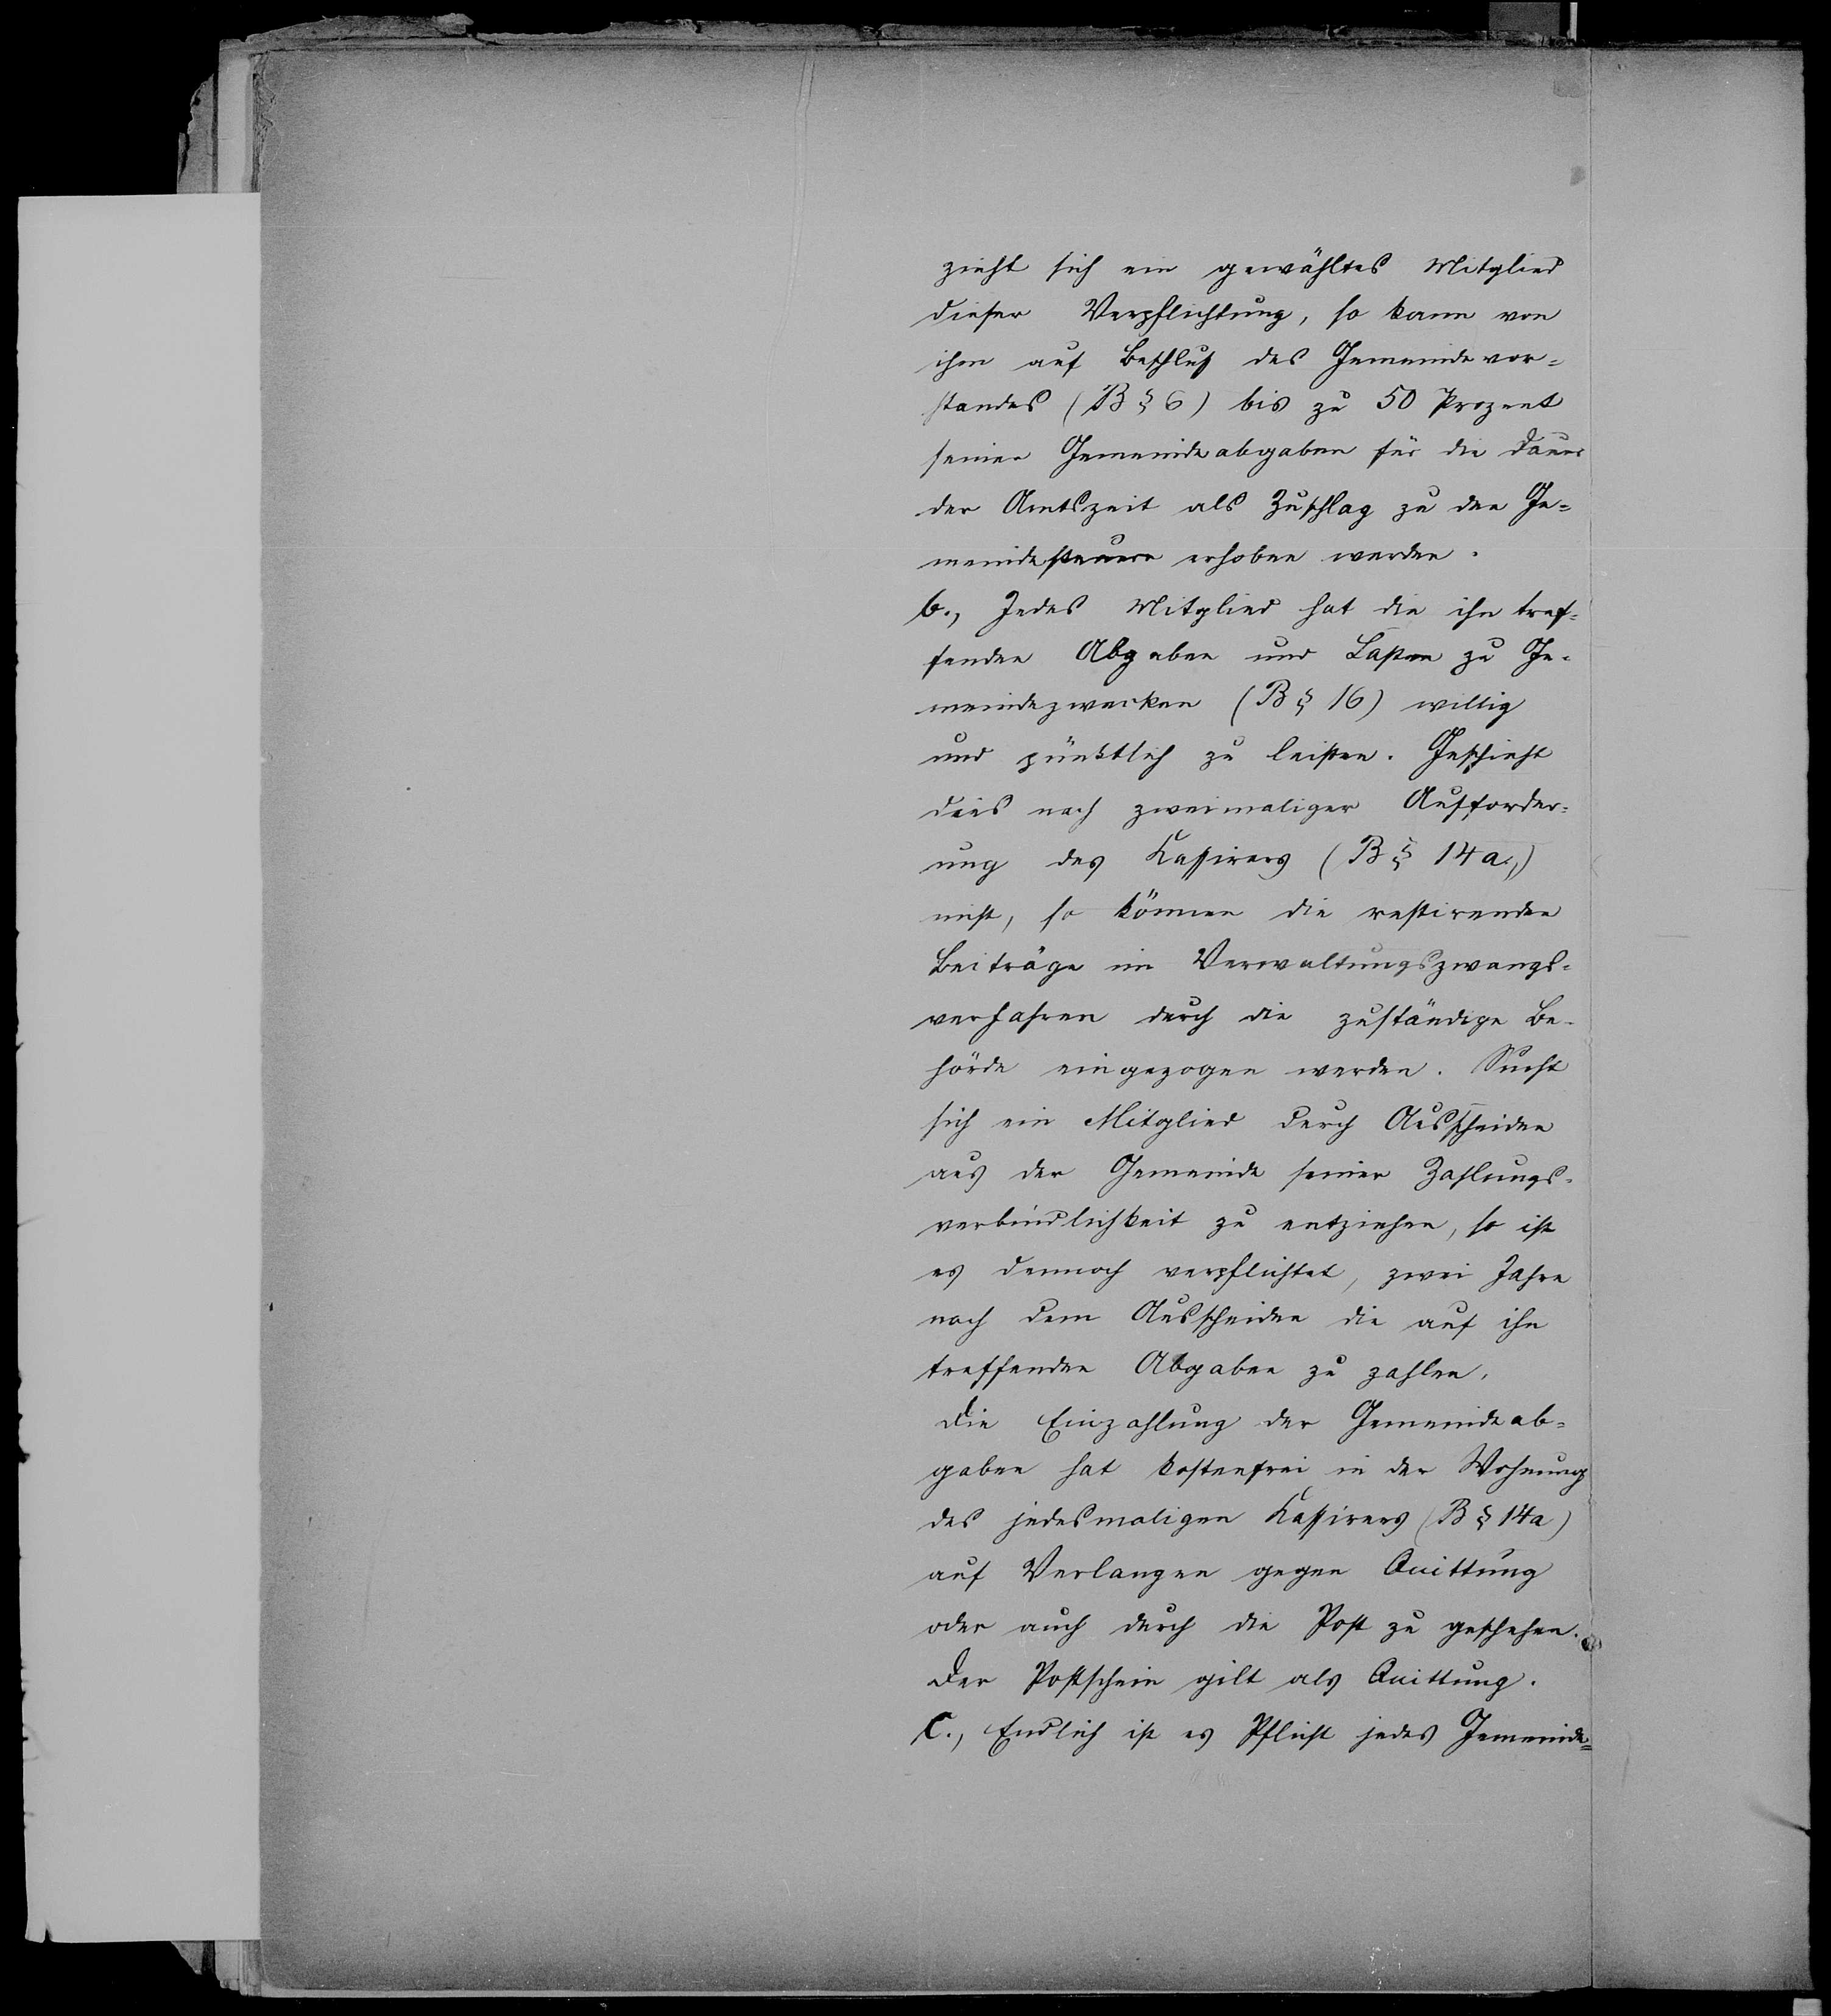 zieht sich ein gewähltes Mitglied
dieser Verpflichtung, so kann von
ihm auf Beschluß des Gemeindevor-
standes (B § 6) bis zu 50 Prozent
seiner Gemeindeabgaben für die Dauer
der Amtszeit als Zuschlag zu den Ge-
meindesteuern erhoben werden.
b., Jedes Mitglied hat die ihn tref-
fenden Abgaben und Lasten zu Ge-
meindezwecken (B § 16) willig
und pünktlich zu leisten. Geschieht
dies nach zweimaliger Aufforder-
ung des Kassirers (B § 14 a.,)
nicht, so können die restirenden
Beiträge im Verwaltungszwangs-
verfahren durch die zuständige Be-
hörde eingezogen werden. Sucht
sich ein Mitglied durch Ausscheiden
aus der Gemeinde seiner Zahlungs-
verbindlichkeit zu entziehen, so ist
es dennoch verpflichtet, zwei Jahre
nach dem Ausscheiden die auf ihn
treffenden Abgaben zu zahlen.
Die Einzahlung der Gemeindeab-
gaben hat kostenfrei in der Wohnung
des jedesmaligen Kassirers (B § 14a)
auf Verlangen gegen Quittung
oder auch durch die Post zu geschehen.
Der Postschein gilt als Quittung.
C., Endlich ist es Pflicht jedes Gemeinde-